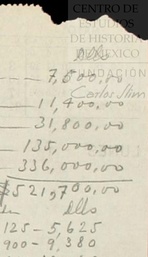 CENTRO DE
ESTUDIOS
DE HISTORIA
DE MÉXICO
Dlls
7,500.00
FUNDACIÓN
Carlos Slim
11,400.00
31,800.00
135,000.00
336,000.00
$521,700.00
Dlls
125 - 5,625
900 - 9,380